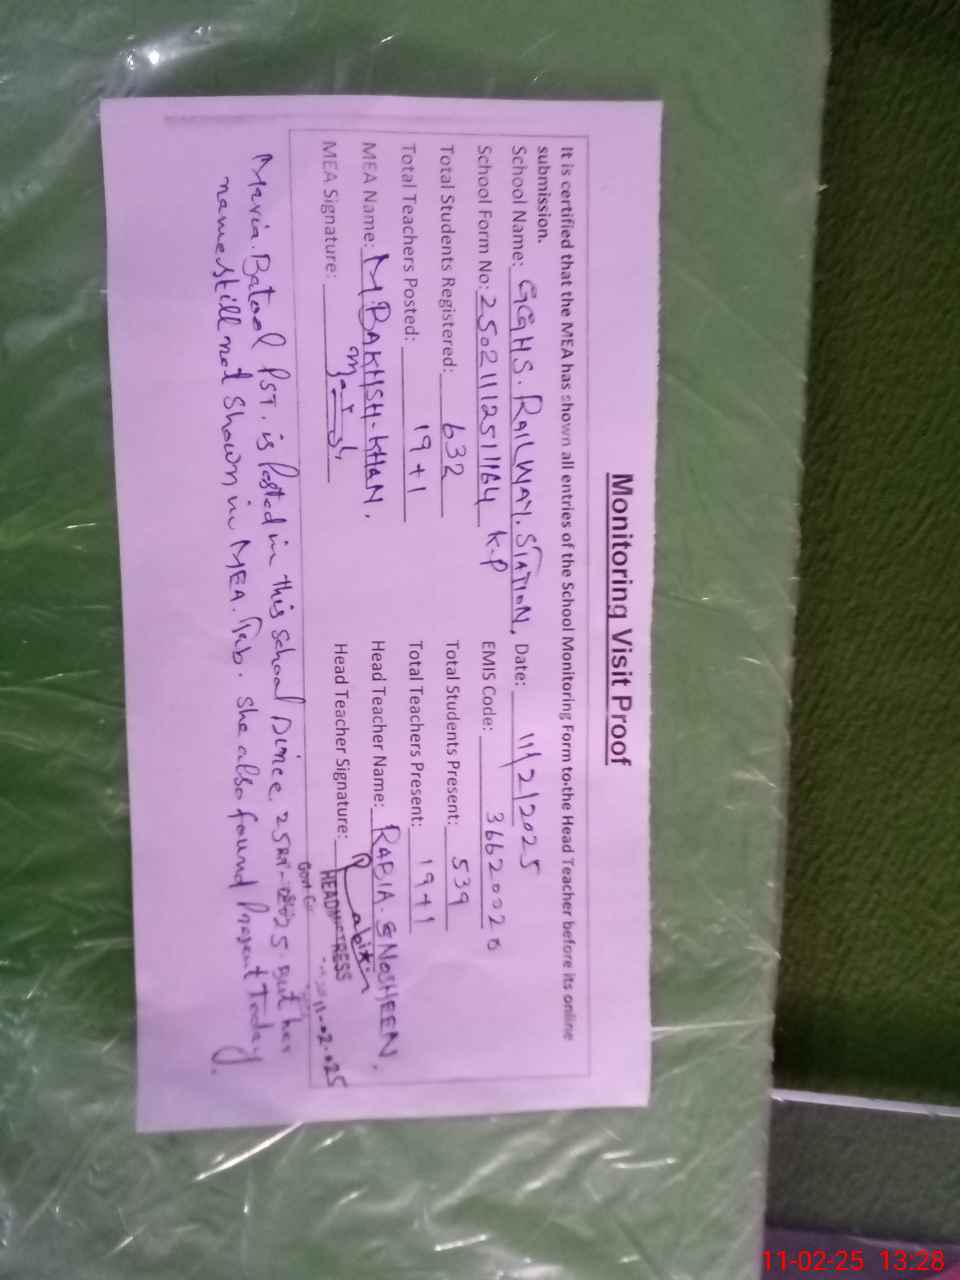 Monitoring Visit Proof
It is certified that the MEA has shown all entries of the School Monitoring Form to the Head Teacher before its online
submission.
School Name: GGHS. RAILWAY. STATION, Date: 11/2/2025
School Form No: 25021112511164 K.P EMIS Code: 36620020
Total Students Registered: 632 Total Students Present: 539
Total Teachers Posted: 19+1 Total Teachers Present: 19+1
MEA Name: M.BAKHSH-KHAN, Head Teacher Name: RABIA. NOSHEEN,
MEA Signature: Head Teacher Signature:
HEADMISTRESS
11-02-025
Maria. Batool PST, is Posted in this School Since, 25 But her
name still not Shown in MEA. Tab. She also found Present Today.
11-02-25 13:28